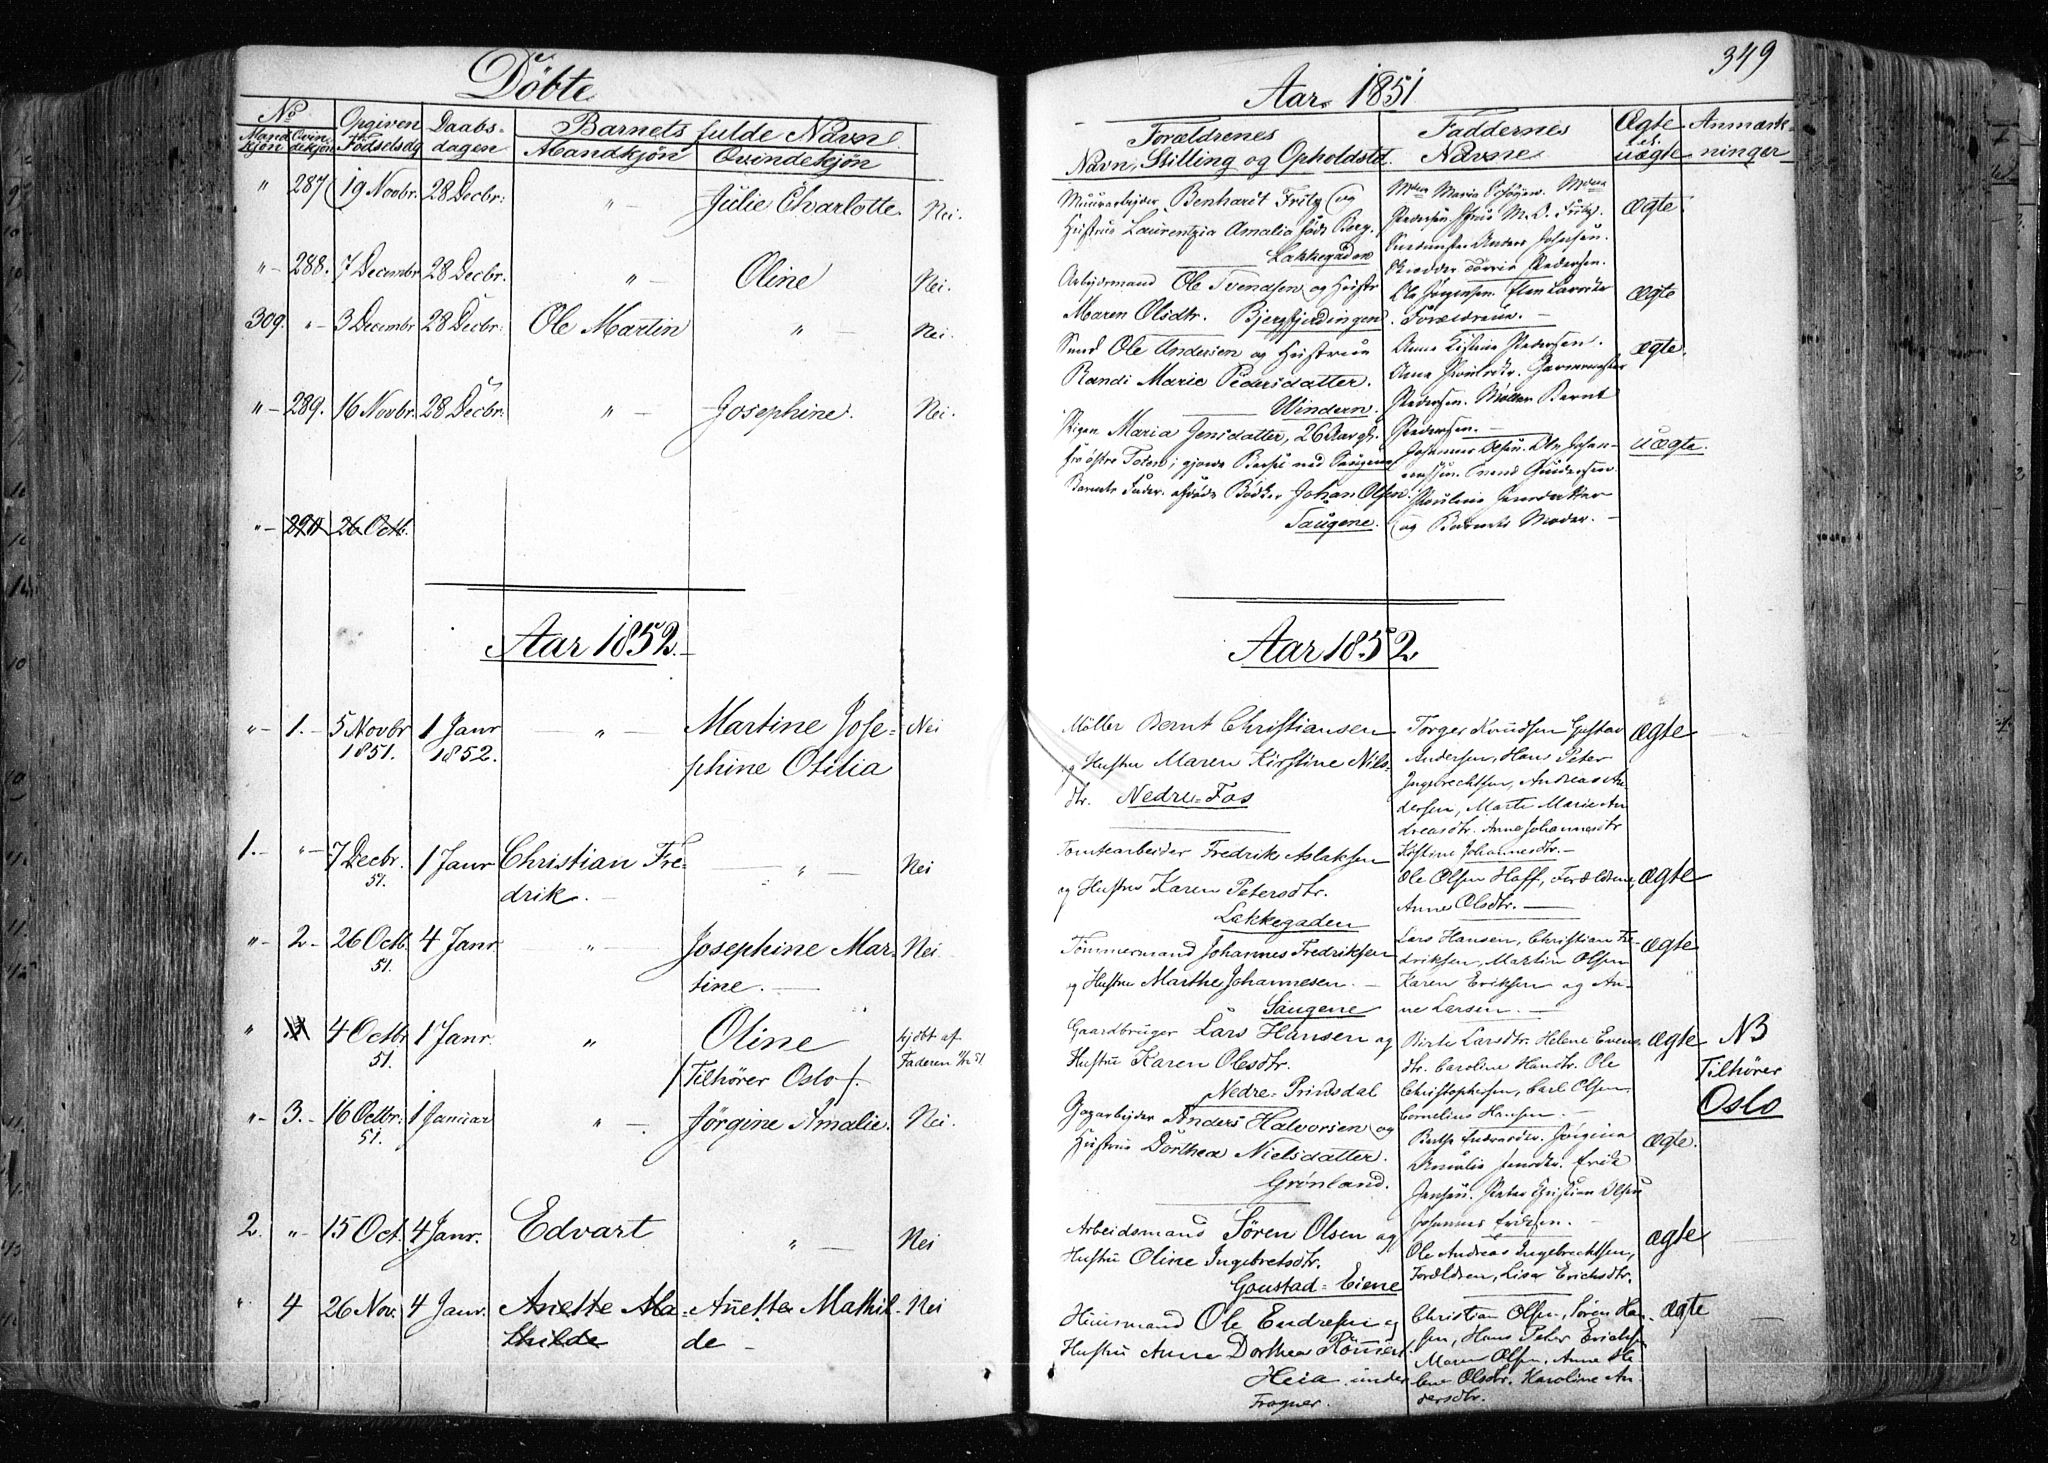 Döbte
Aar 1851
349
No
Mandkjön Qvindekjön
Opgiven Födselsdg
Daabsdagen
Barnets fulde Navn
Mandkjön Qvindekjön
Forældrenes
Navn, Stilling og Opholdstd
Faddernes
Navne
Ægte el. uægte
Anmærkninger
" 287 19 Novbr. 28 Decbr: " Julie Charlotte. Nei.
Muurarbejder Benhardt Fritz og
Hustrue Laurentzia Amalia föds Berg.
Lakkegaden
Ægte
" 288. 7 Decembr 28 Decbr. " Oline Nei.
Arbejdsmand Ole Svendsen og Hustr
Maren Olsdtr. Bjergfjerdingen.
Ole Jörgensen.
Forældrene.
Ægte
309. " 3 Decembr 28 Decbr: Ole Martin " Nei.
Ole Andersen og Hustrue
Randi Marie Pedersdatter.
Windern.
Anne Kistine Pedersen.
Pedersen. Möller Bernt
Pedersen.
Ægte.
" 289. 16 Novbr. 28 Decbr: " Josephine. Nei.
Pigen Maria Jensdatter, 26 Aar gl.
fra östre Toten;
Barnets Fader. afdöde Bödker Johan Olsen.
Saugene.
og Barnets Moder.
uægte.
" 290 26 Octb.
Aar 1852.
Aar 1852
" 1. 5 Novbr 1 Janr " Martine Jose- Nei
1851. 1852. phine Otilia
Möller Bernt Christiansen
og Hustru Maren Kirstine Nils-
dtr. Nedre=Fos
Torger Knudsen Gustav
Andersen, Hans Peter
Ingebrechtsen, Andreas An-
dersen, Marte Marie An
dreasdtr. Anne Johannesdtr
Kirstine Johannesdtr.
Ægte
1. " 7 Decbr. 1 Janr Christian Fre- " Nei
51. drik.
Tomtearbeider Fredrik Aslaksen
og Hustru Karen Petersdtr.
Lakkegaden
Ole Olsen Hoff, Forældrene,
Anne Olsdtr.
Ægte
" 2 26 Octb. 4 Janr " Josephine Mar- Nei.
51. tine.
Tömmermand Johannes Fredriksen
og Hustru Marthe Johannesen.
Saugene
Lars Hansen, Christian Fre-
driksen, Martin Olsen
Karen Eriksen og An-
ne Larsen.
Ægte
" 4 Octbr 1 Janr. " Oline hjdbt af
51. /Tilhörer Oslo/. Faderen
Gaardbruger Lars Hansen og
Hustru Karen Olesdtr.
Nedre Prindsdal
Birte Larsdtr. Helene Evens-
dtr. Caroline Hansdtr. Ole
Christophersen, Carl Olsen
Cornelius Hansen.
Ægte
NB
Tilhörer
Oslo
" 3. 16 Octbr: 1 Januar " Jörgine Amalie. Nei.
51.
Anders Halvorsen og
Hustrue Dorthea Nielsdatter.
Grönland.
Jensen. Peter Christian Olsen
Ægte.
2. " 15 Oct. 4 Janr. Edvart " Nei
Arbeidsmand Sören Olsen og
Hustru Oline Ingebretsdtr.
Goustad=Eiene
Ole Andreas Ingebrechtsen,
Forældren, Lisa Erichsdtr.
Ægte
" 4 26 Nov. 4 Janr. Anette Ma- Anette Mathil- Nei
thilde de
Huusmand Ole Endresen og
Hustru Anne Dorthea
Heia under
Frogner.
Christian Olsen, Sören Han-
sen, Hans Peter Erichsen
Maren Olsen, Anne He-
lene Olsdtr. Karoline An-
dersdtr.
Ægte